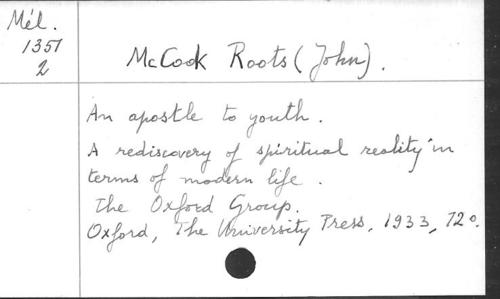 Mél.
1351
2
McCook Roots (John).
An apostle to youth.
A rediscovery of spiritual reality in
terms of modern life.
The Oxford Group.
Oxford, The University Press, 1933, 12°.